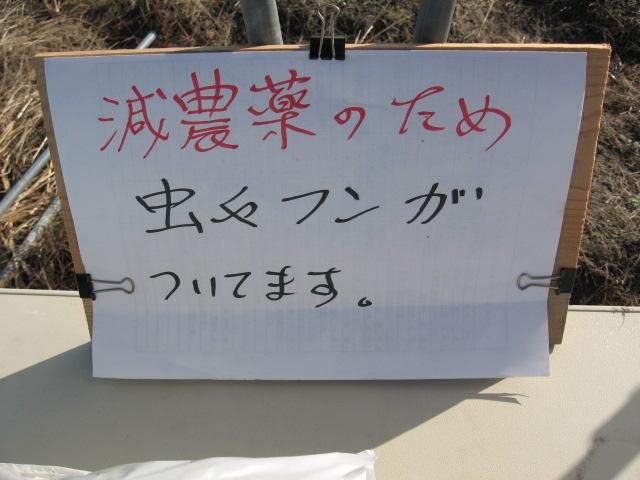 減農薬のため
虫やフンが
ついてます。